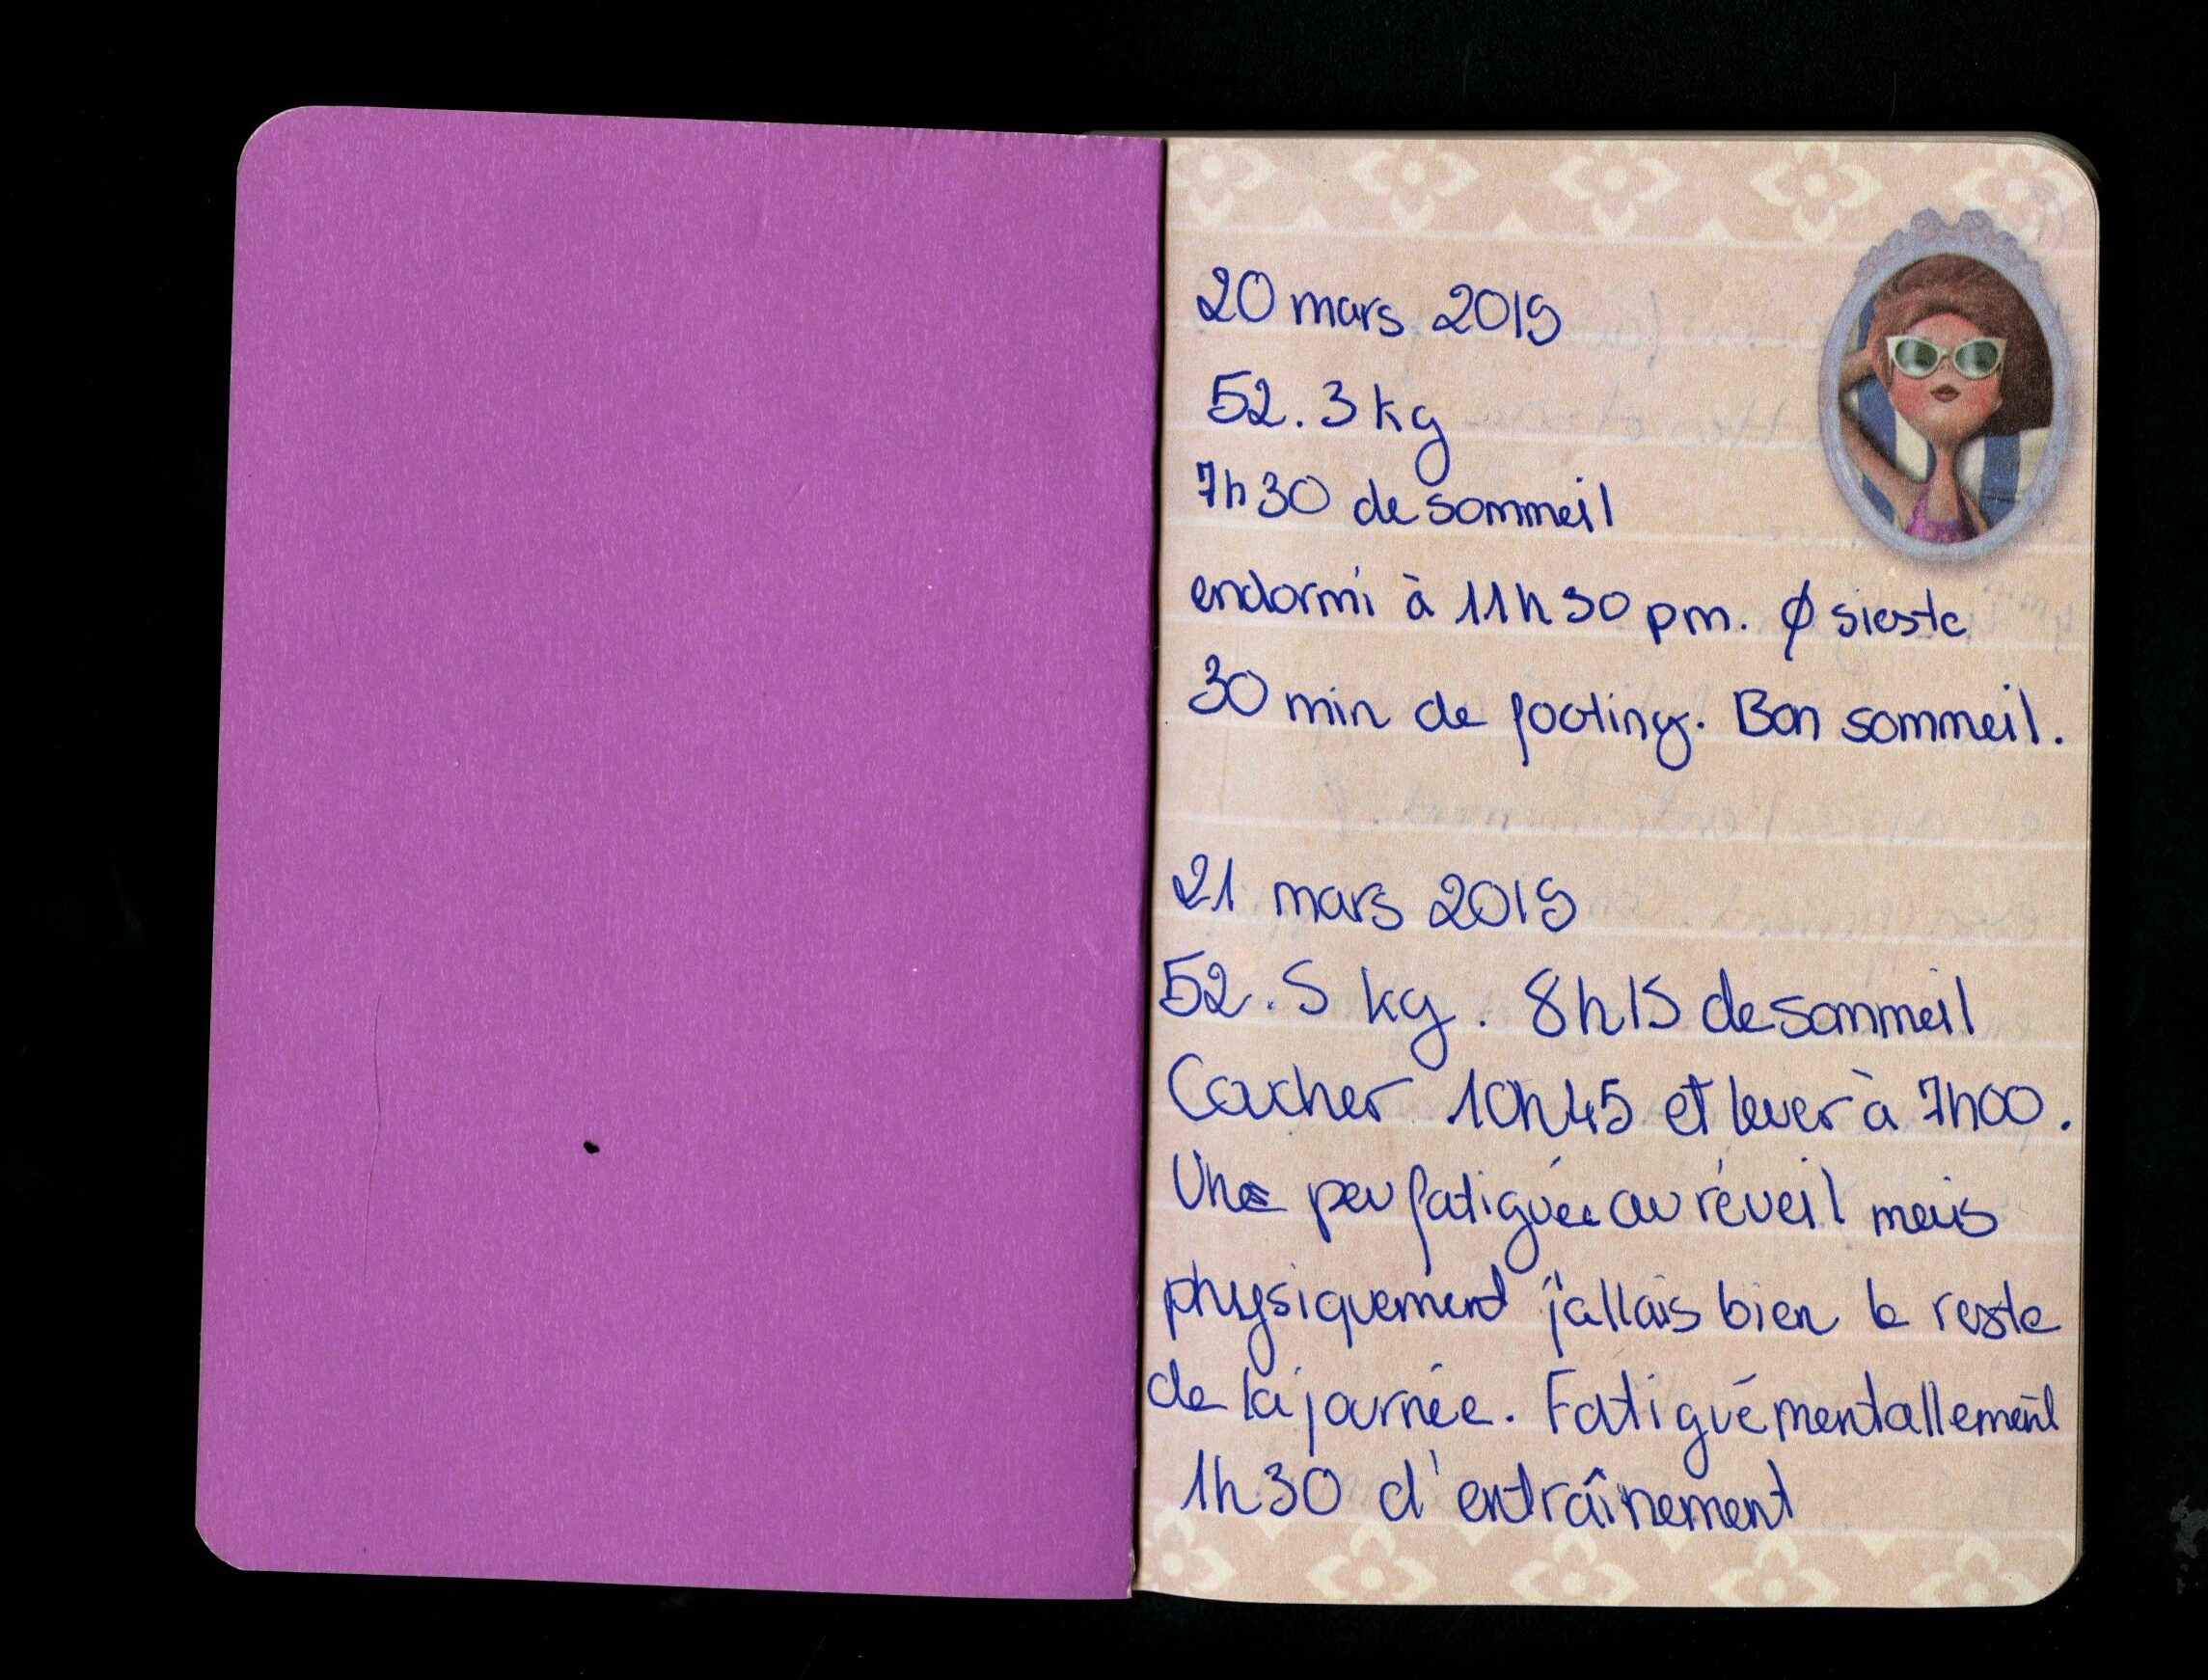 20 mars 2019
52.3 kg
7h30 de sommeil
endormi à 11h30 pm. Ø sieste
30 min de footing. Bon sommeil.
21 mars 2019
52.5 kg. 8h15 de sommeil
Coucher 10h45 et lever à 7h00.
Une peu fatiguée au réveil mais
physiquement j'allais bien le reste
de la journée. Fatigué mentallement
1h30 d'entraînement